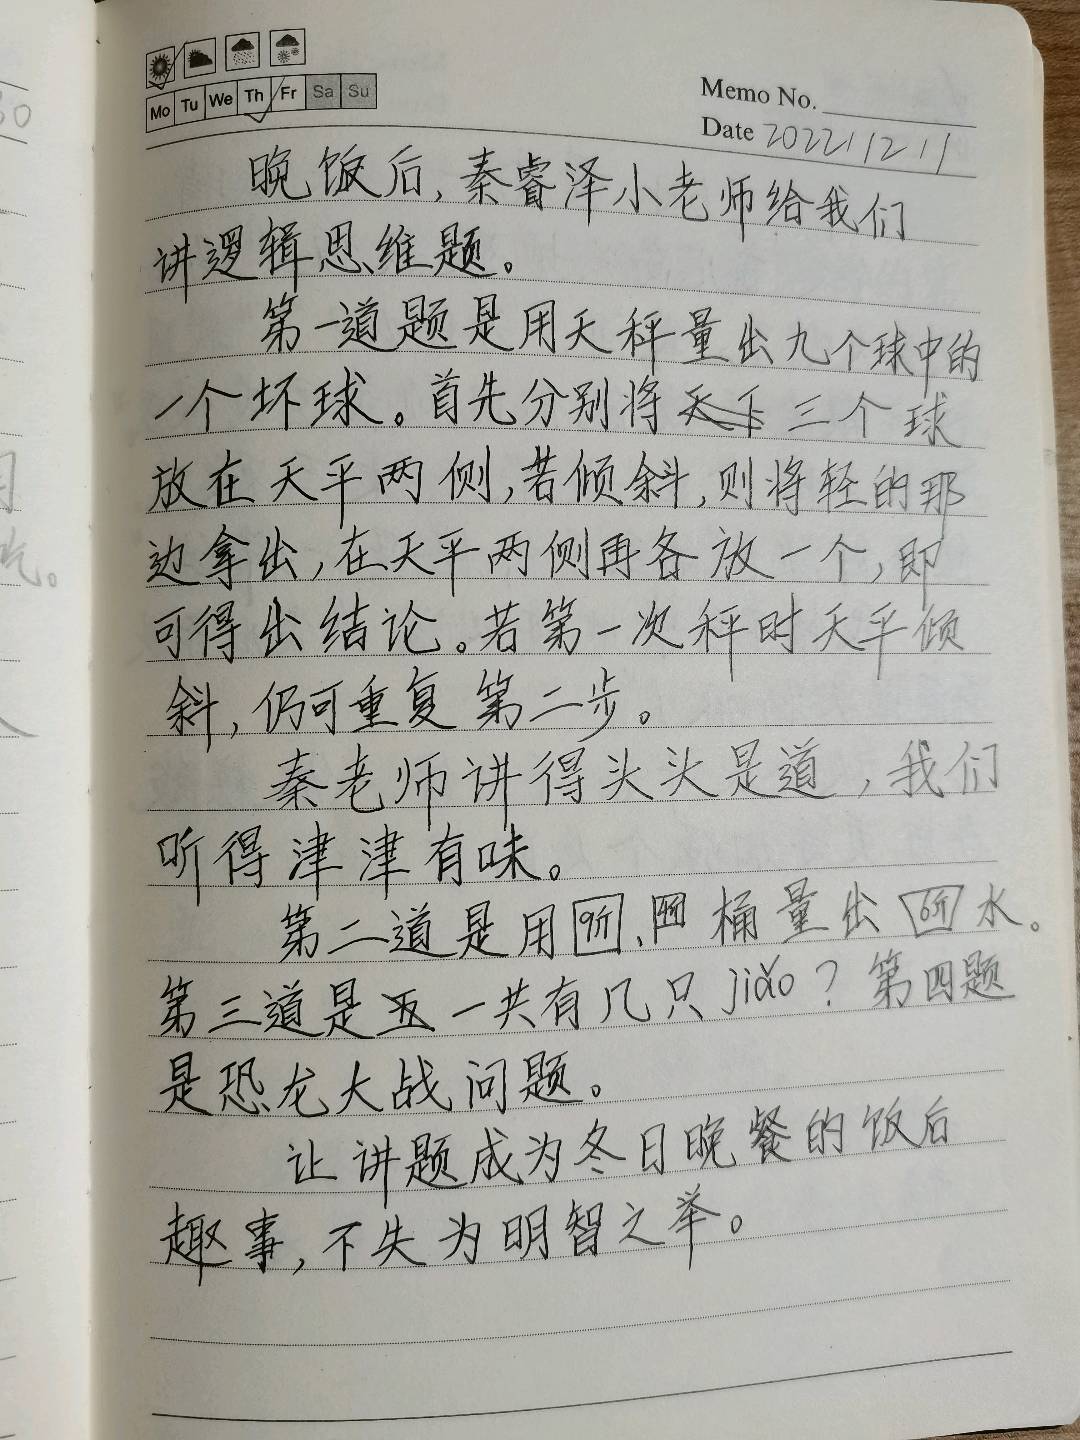 Mo Tu We Th Fr Sa Su
Memo No.
Date 2022 12 11
晚饭后，秦睿泽小老师给我们
讲逻辑思维题。
第一道题是用天秤量出九个球中的
一个坏球。首先分别将三个球
放在天平两侧，若倾斜，则将轻的那
边拿出，在天平两侧再各放一个，即
可得出结论。若第一次秤时天平倾
斜，仍可重复第二步。
秦老师讲得头头是道，我们
听得津津有味。
第二道是用9斤、4斤桶量出6斤水。
第三道是一共有几只jiǎo？第四题
是恐龙大战问题。
让讲题成为冬日晚餐的饭后
趣事，不失为明智之举。